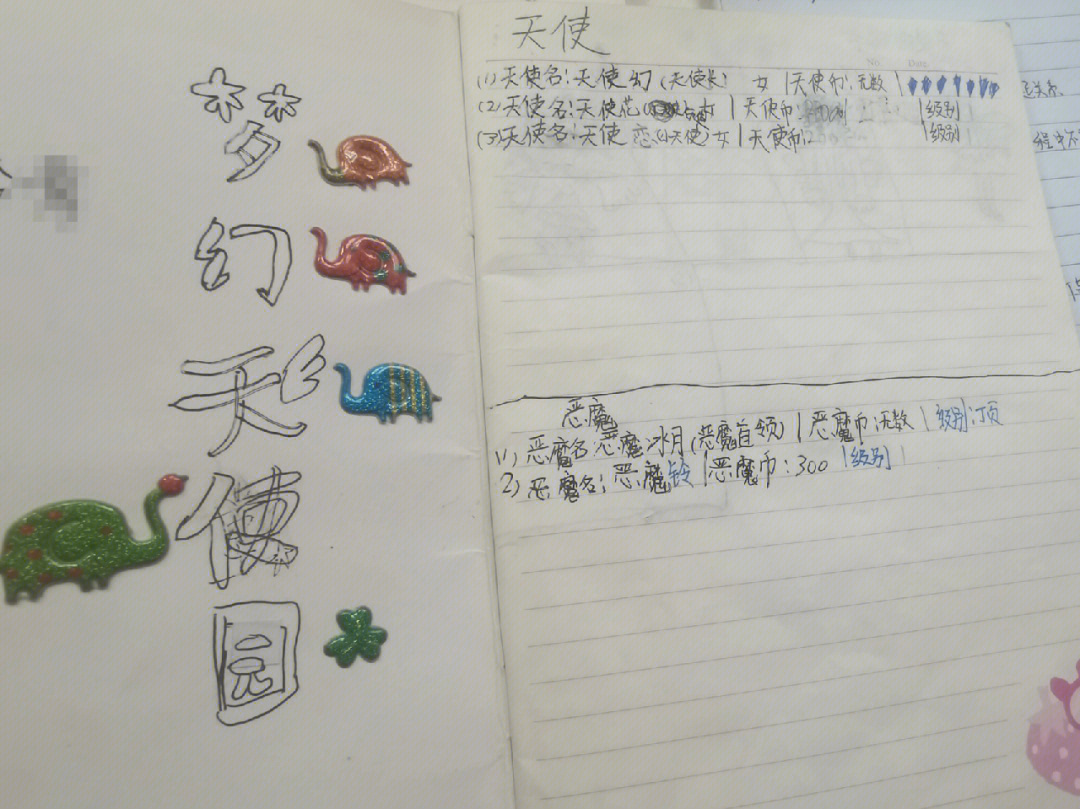 梦
幻
天
使
园
天使
No. Date
(1) 天使名:天使幻 (天使长) 女 |天使币:无数 |
(2) 天使名:天使花 女 | 天使币: |级别
(3) 天使名:天使 恋 天使) 女 | 天使币: |级别
恶魔
1) 恶魔名 恶魔:冰月 (恶魔首领) | 恶魔币:无数 | 级别:顶
2) 恶魔名: 恶魔铃 |恶魔币:300 |级别